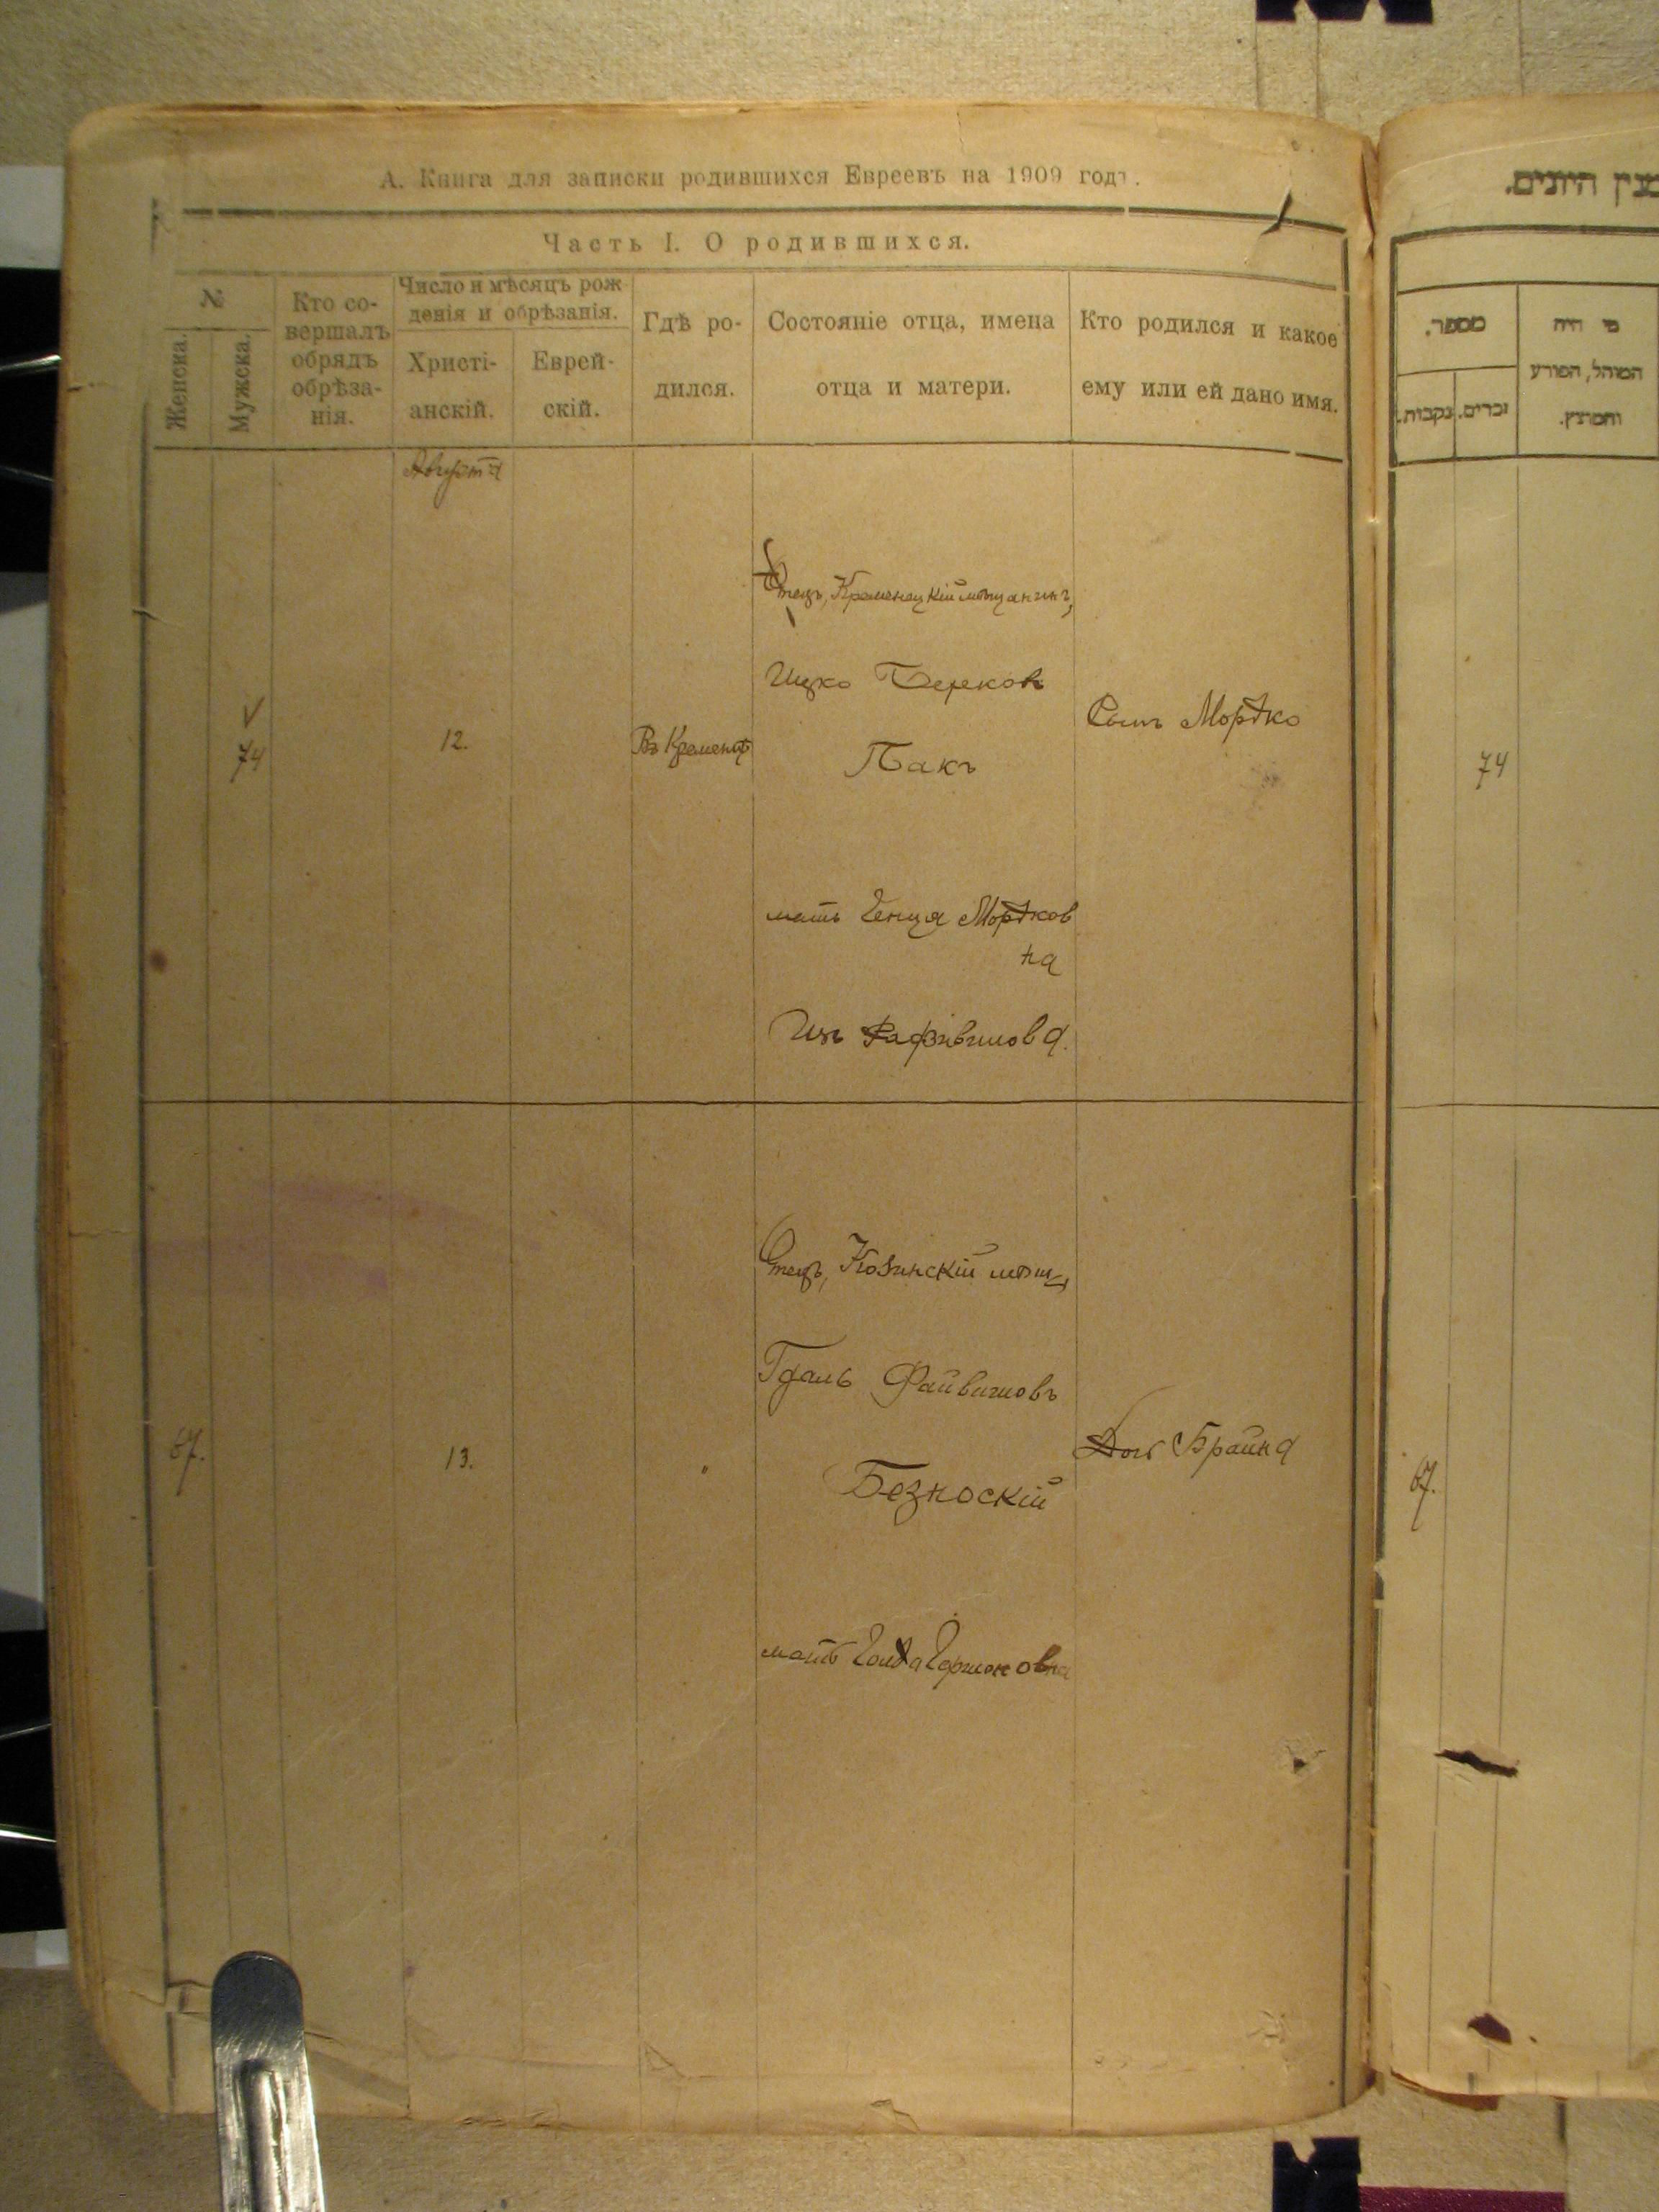 А. Книга для записки родившихся Евреевъ на 1909 годъ.
Часть I. О родившихся.
№
Женска.
Мужска.
Кто со-
вершалъ
обрядъ
обрѣза-
нія.
Число и мѣсяцъ рож
денія и обрѣзанія.
Христі-
анскій.
Еврей-
скій.
Гдѣ ро-
дился.
Состояніе отца, имена
отца и матери.
Кто родился и какое
ему или ей дано имя.
Августа
74
12.
Въ Кременцѣ
Отецъ, Кременецкій мѣщанинъ,
Ицко Берковъ
Пакъ
мать Генця Мордков
на
Изъ
Сынъ Мордко
67.
13.
"
Отецъ, Козинскій мѣщ,
Гдаль Файвишовъ
Безноскій
мать Голда
Дочь Брайна
מנין היונים.
מספר.
נקבות.
זכרים.
מי היה
המוהל, הפורע
והמוצץ.
74
67.